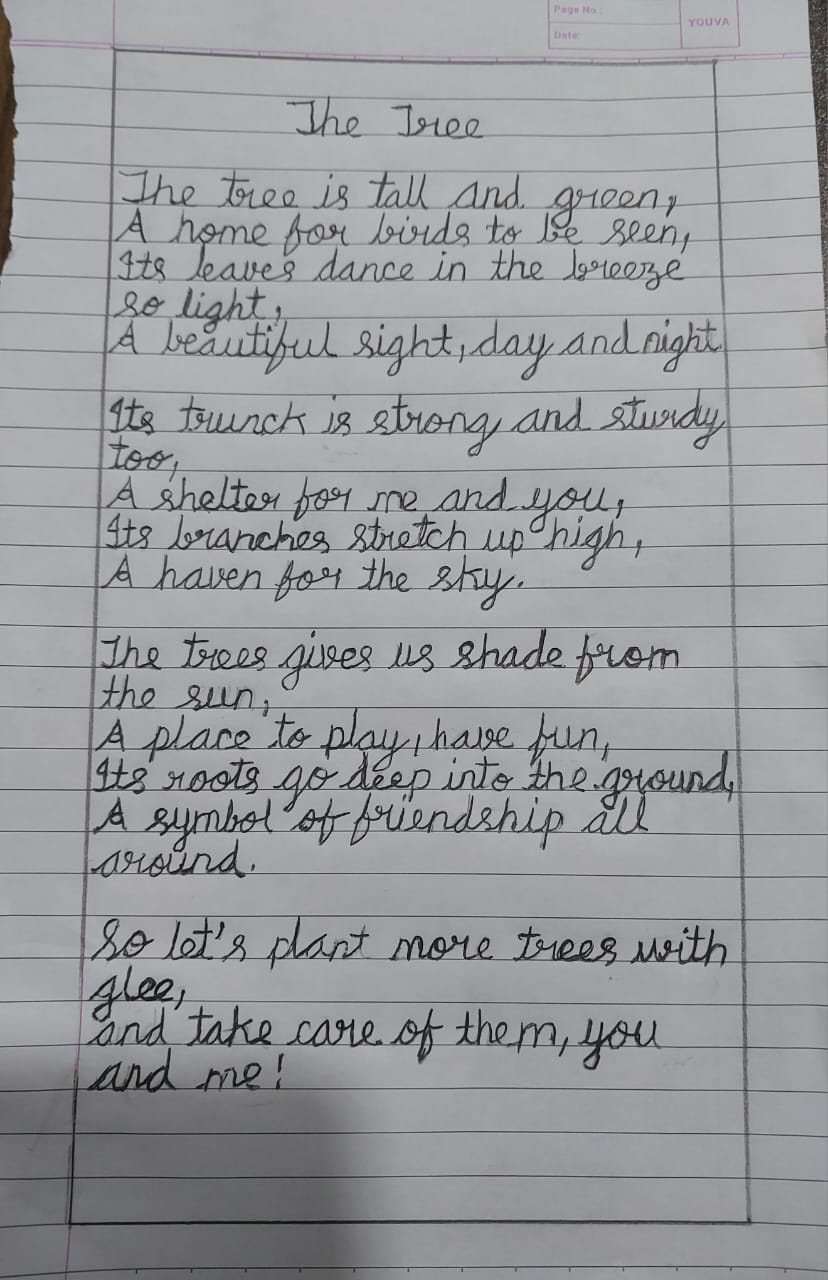 Page No.:
Date:
YOUVA
The Tree
The tree is tall and green,
A home for birds to be seen,
Its leaves dance in the breeze
so light,
A beautiful sight, day and night
Its trunck is strong and sturdy
too,
A shelter for me and you,
Its branches stretch up high,
A haven for the sky.
The trees gives us shade from
the sun,
A place to play, have fun,
Its roots go deep into the ground,
A symbol of friendship all
around.
So let's plant more trees with
glee,
and take care of them, you
and me!